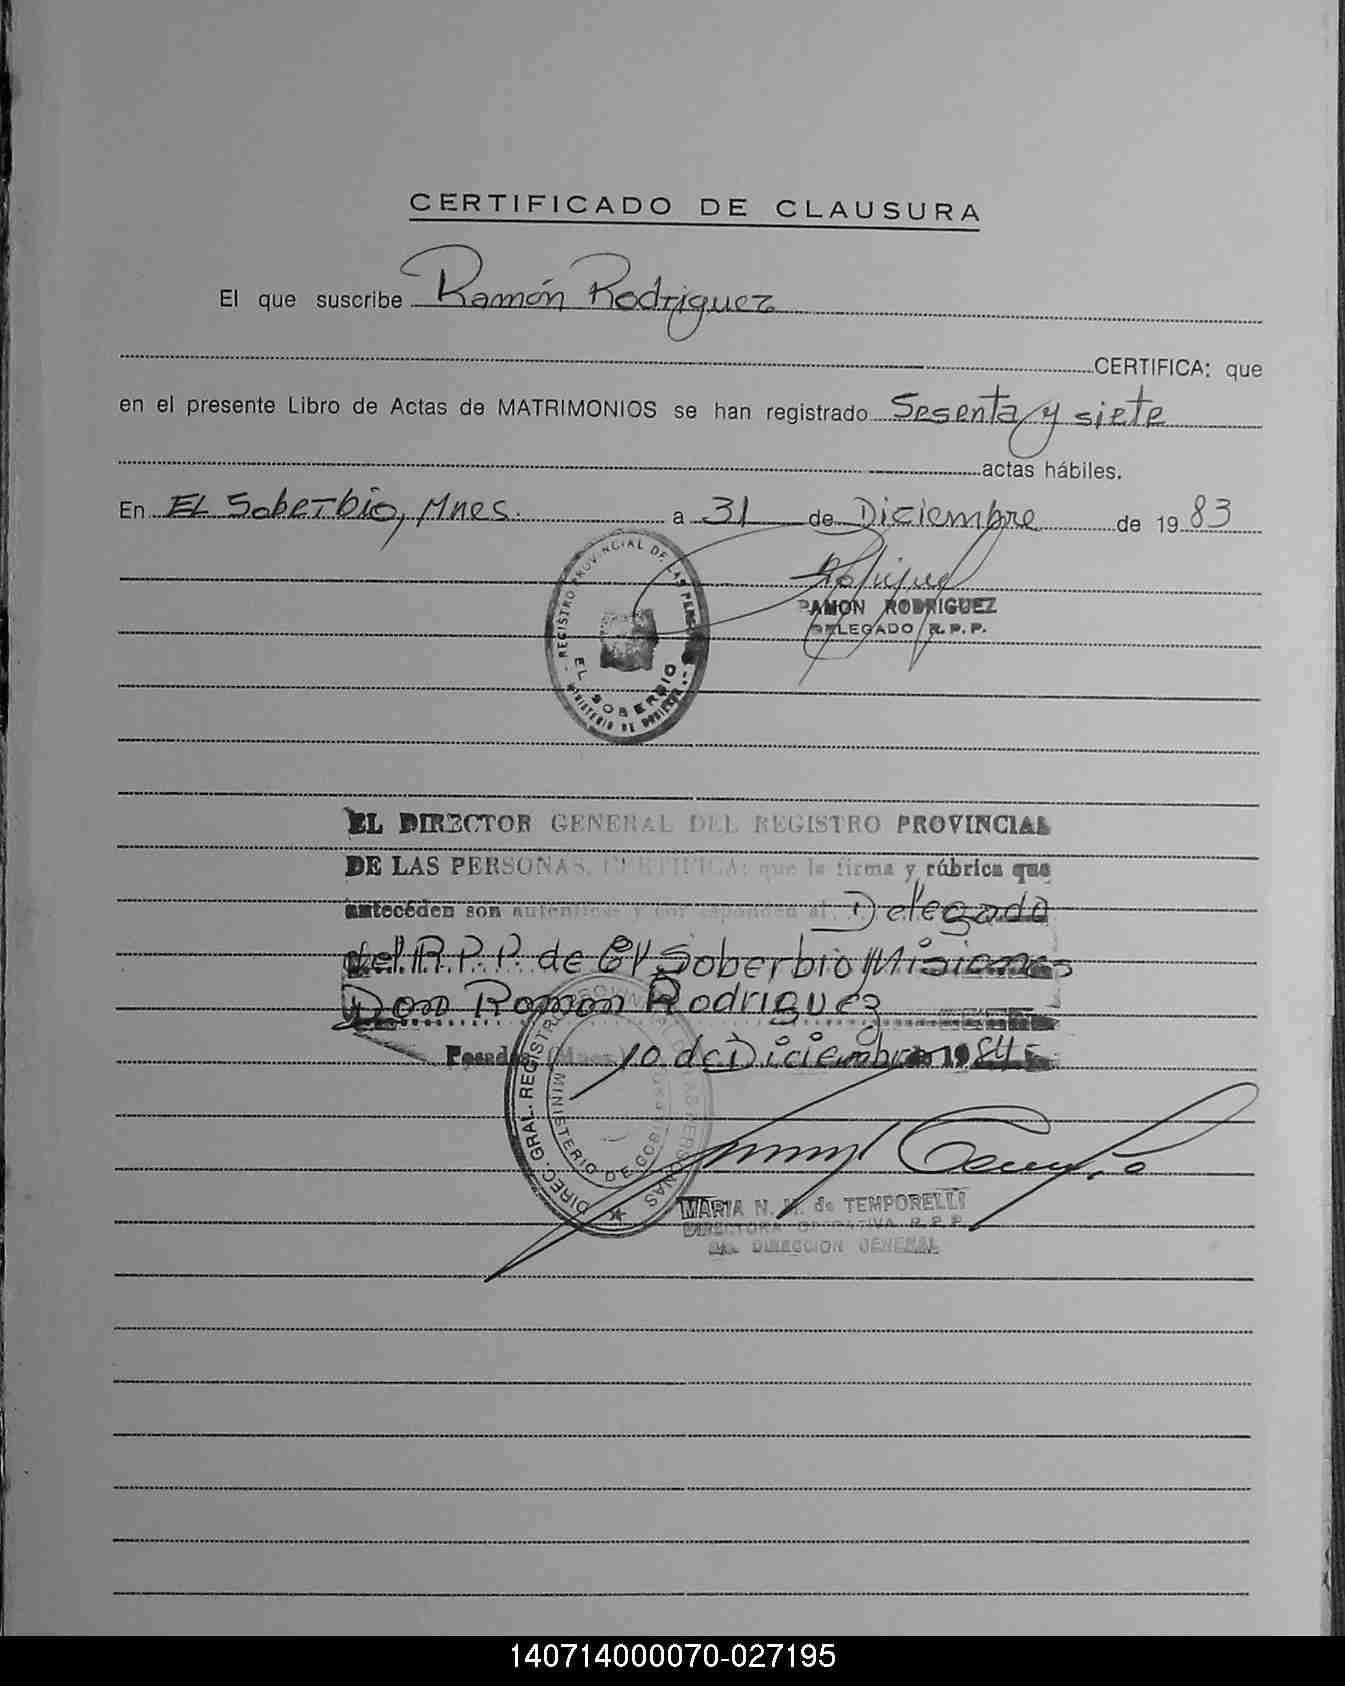 CERTIFICADO DE CLAUSURA
El que suscribe Ramón Rodriguez
CERTIFICA: que
en el presente Libro de Actas de MATRIMONIOS se han registrado Sesenta y siete
actas hábiles.
En EL Soberbio, Mnes. a 31 de Diciembre de 1983
REGISTRO PROVINCIAL DE LAS
EL SOBERBIO
MINISTERIO DE
RAMON RODRIGUEZ
DELEGADO R.P.P.
EL DIRECTOR GENERAL DEL REGISTRO PROVINCIAL
DE LAS PERSONAS, CERTIFICA: que la firma y rúbrica que
anteceden son autenticas y corresponden al Delegado
del R.P.P. de El Soberbio Misiones
Don Ramon Rodriguez
Posadas (Mnes.) 10 de Diciembre 1984
DIREC. GRAL. REGISTRO PROVINCIAL DE LAS PERSONAS
MINISTERIO DE GOBIERNO
MARIA N. M. de TEMPORELLI
DIRECTORA OPERATIVA R.P.P.
DIRECCION GENERAL
140714000070-027195